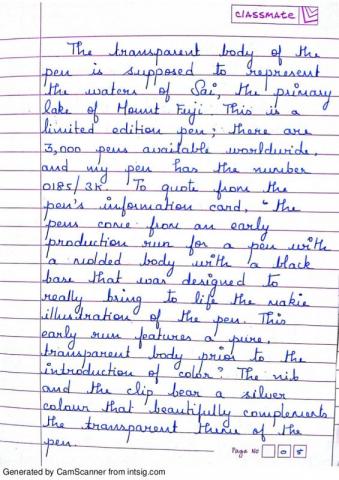 classmate
The transparent body of the
pen is supposed to represent
the waters of Sai, the primary
lake of Mount Fuji. This is a
limited edition pen; there are
3,000 pens available worldwide,
and my pen has the number
0185/3K. To quote from the
pen's information card, "the
pens come from an early
production run for a pen with
a molded body with a black
base that was designed to
really bring to life the makie
illustration of the pen. This
early run features a pure,
transparent body prior to the
introduction of color." The nib
and the clip bear a silver
colour that beautifully complements
the transparent theme of the
pen.
Page No 08
Generated by CamScanner from intsig.com